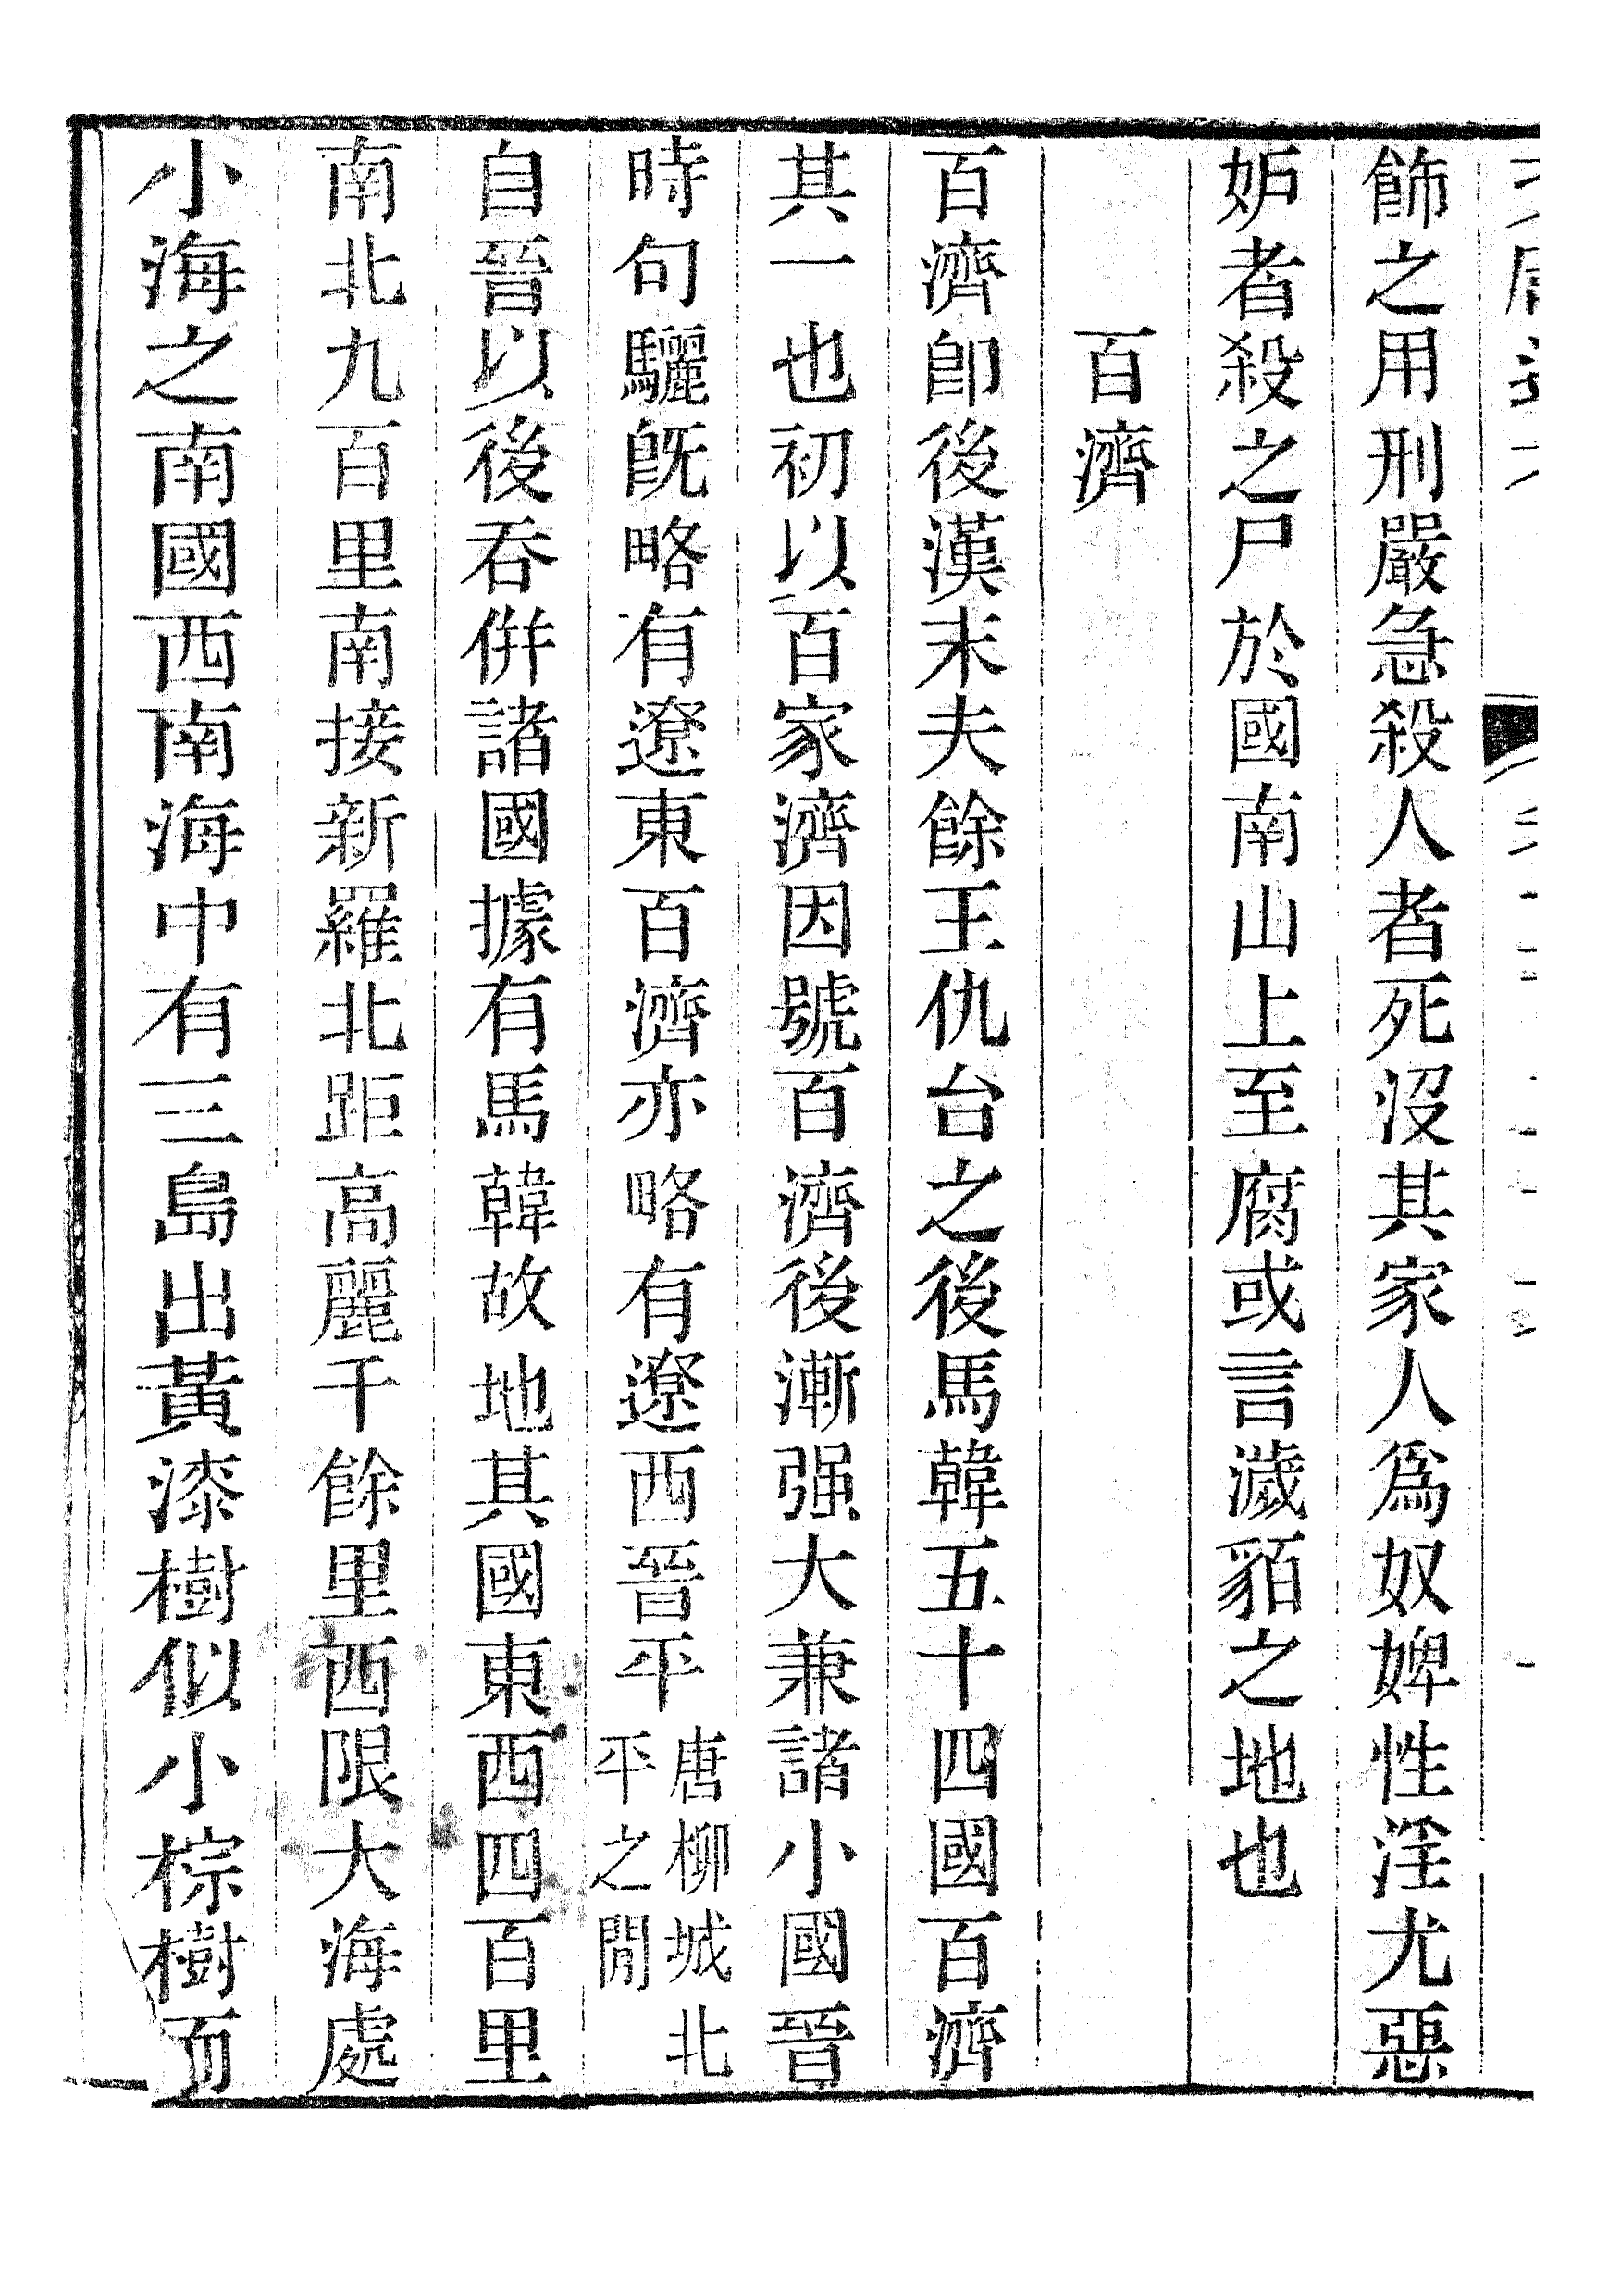 飾之用刑嚴急殺人者死沒其家人爲奴婢性淫尤惡
妒者殺之尸於國南山上至腐或言濊貊之地也
百濟
百濟卽後漢末夫餘王仇台之後馬韓五十四國百濟
其一也初以百家濟因號百濟後漸强大兼諸小國晉
時句驪旣略有遼東百濟亦略有遼西晉平唐柳城北平之閒
自晉以後吞併諸國據有馬韓故地其國東西四百里
南北九百里南接新羅北距高麗千餘里西限大海處
小海之南國西南海中有三島出黃漆樹似小棕樹而